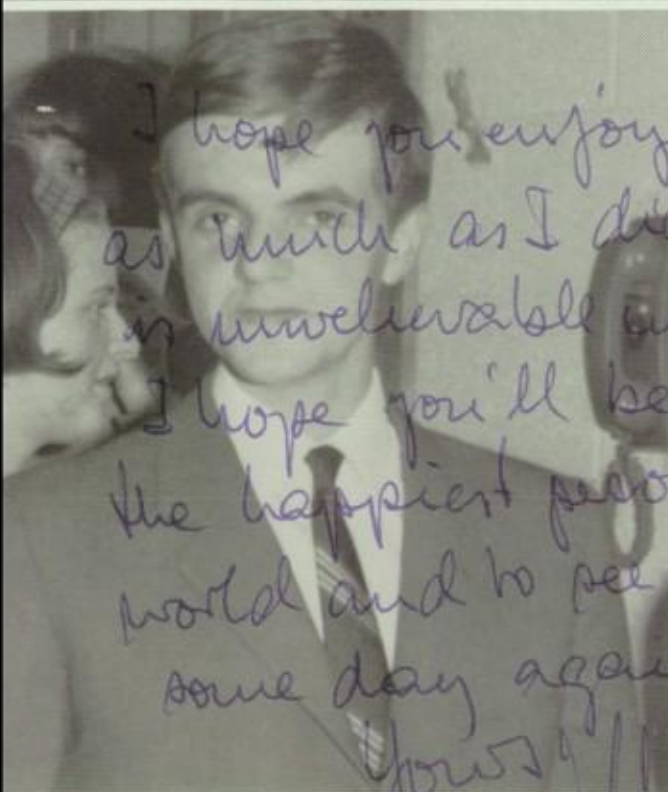 I hope you enjoy
as much as I di
is unvelievable
I hope you'll be
the happiest
world and to see
some day again
Yours!!!